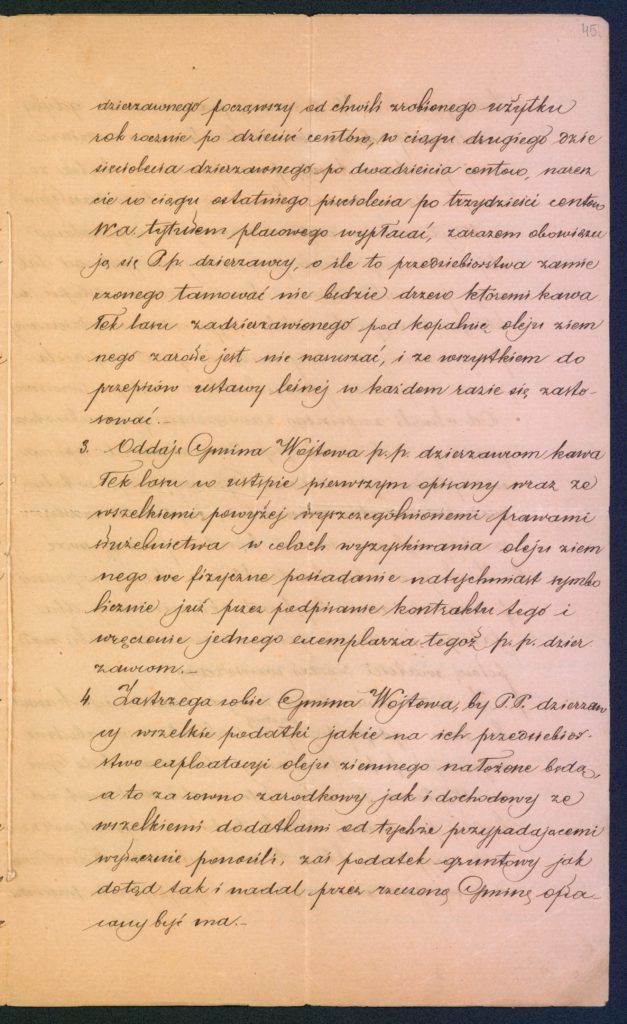 45.
dzierzawnego począwszy od chwili zrobionego użytku
rok rocznie po dziesięć centów, w ciągu drugiego dzie
sięciolecia dzierzawnego po dwadzieścia centów, naresz
cie w ciągu ostatniego pięciolecia po trzydzieści centów
wa. tytułem placowego wypłacać, zarazem obowiązu
ją się P.p. dzierzawcy, o ile to przedsiebiorstwa zamie
rzonego tamować nie będzie drzew któremi kawa
łek lasu zadzierzawionego pod kopalnię oleju ziem
nego zarosłe jest nie naruszać, i ze wszystkiem do
przepisów ustawy leśnej w każdem razie się zasto-
sować.-
3. Oddaje Gmina Wójtowa p.p. dzierzawcom kawa
łek lasu w ustępie pierwszym opisany wraz ze
wszelkiemi powyżej wyszczególnionemi prawami
służebnictwa w celach wyzyskiwania oleju ziem
nego we fizyczne posiadanie natychmiast symbo
licznie już przez podpisanie kontraktu tego i
wręczenie jednego exemplarza tegoż p.p. dzier
zawcom.-
4. Zastrzega sobie Gmina Wójtowa, by P.P. dzierzaw
cy wszelkie podatki jakie na ich przedsiebior-
stwo exploatacyi oleju ziemnego nałożone będą,
a to za rowno zarodkowy jak i dochodowy ze
wszelkiemi dodatkami od tychże przypadającemi
wyłącznie ponosili, zaś podatek gruntowy jak
dotąd tak i nadal przez rzeczoną Gminę opła-
cany być ma.-